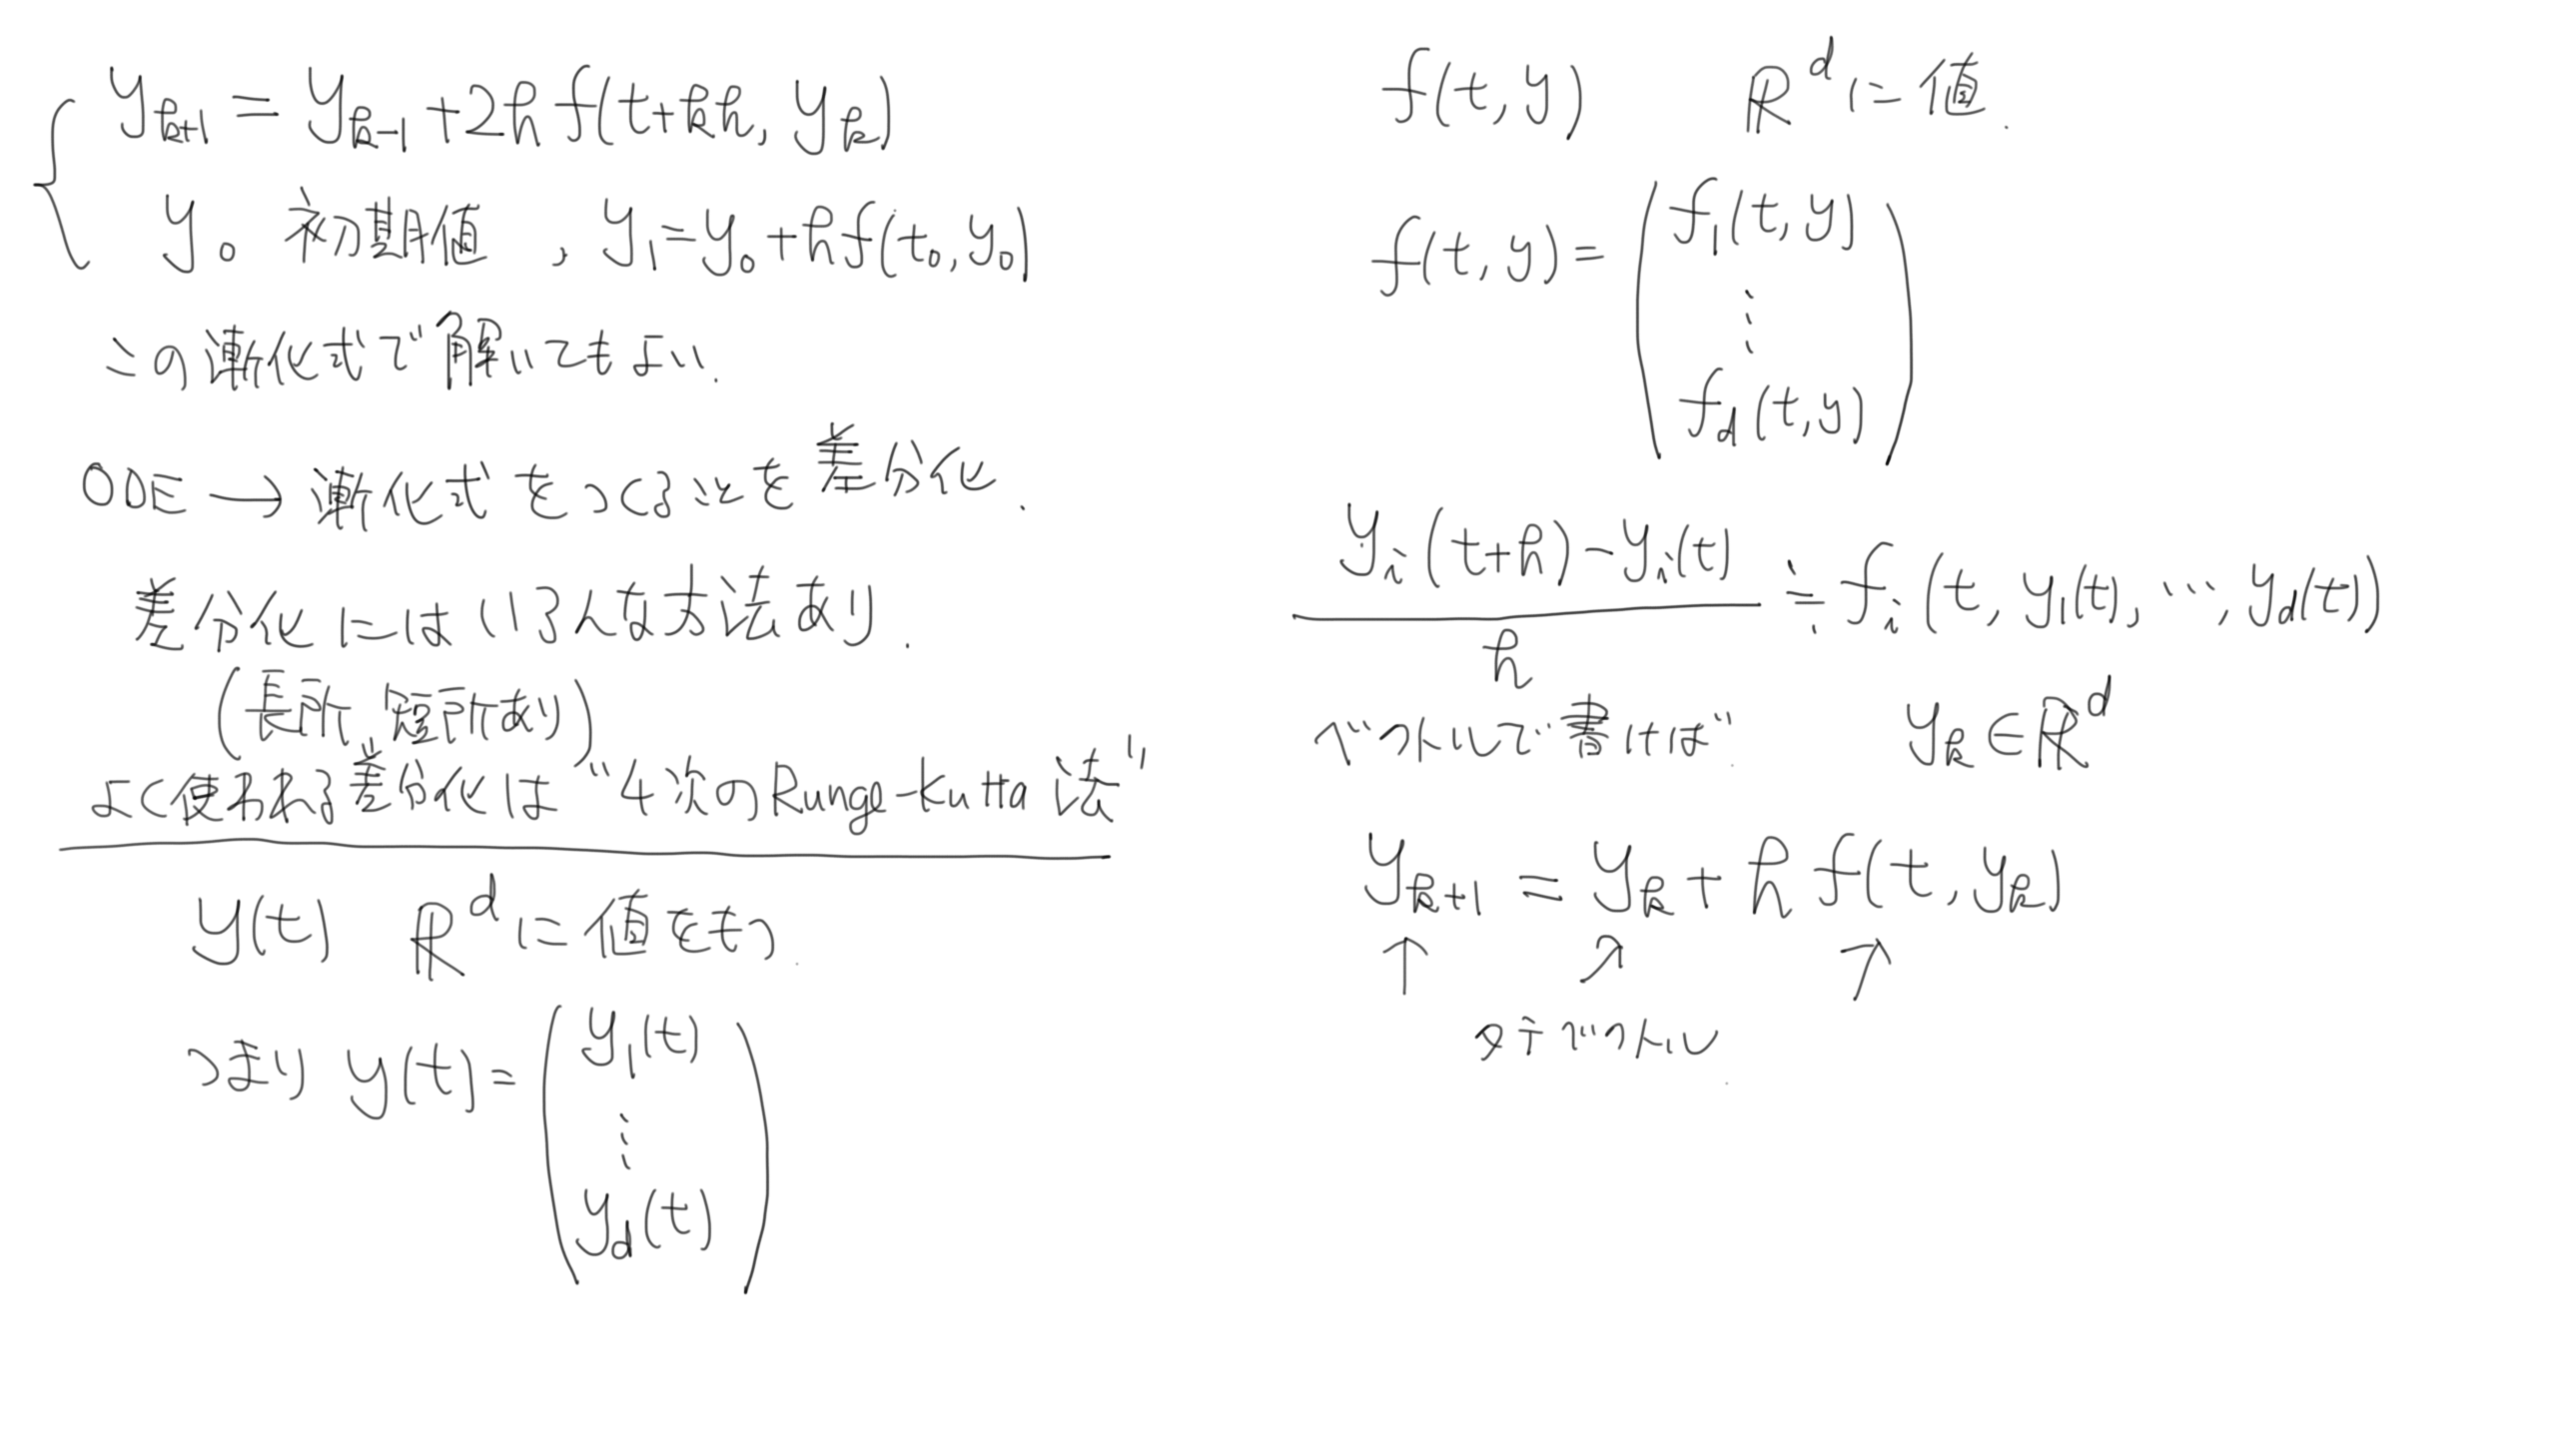 y_{k+1} = y_{k-1} + 2h f(t+kh, y_k)
y_0 初期値 , y_1 = y_0 + h f(t_0, y_0)
この漸化式で解いてもよい.
ODE → 漸化式をつくることを差分化.
差分化にはいろんな方法あり.
(長所, 短所あり)
よく使われる差分化は "4次のRunge-Kutta法"
y(t) ℝ^d に値をもつ.
つまり y(t) = ( y_1(t)
⋮
y_d(t) )
f(t, y) ℝ^d に値.
f(t, y) = ( f_1(t, y)
⋮
f_d(t, y) )
(y_i(t+h) - y_i(t)) / h ≒ f_i(t, y_1(t), ⋯, y_d(t))
ベクトルで書けば. y_k ∈ ℝ^d
y_{k+1} = y_k + h f(t, y_k)
↑ ↗ ↗
タテベクトル.